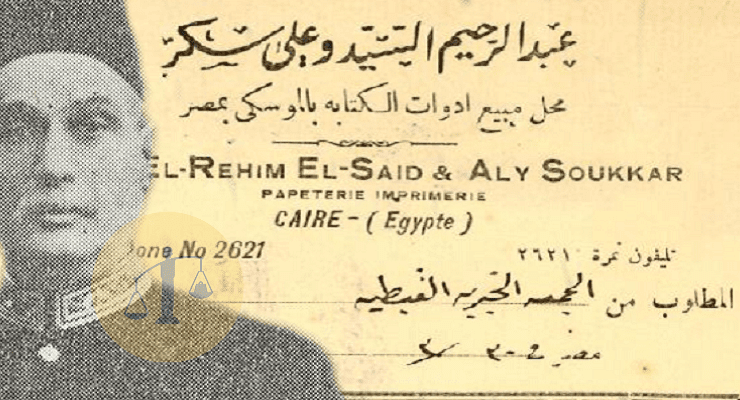 عبد الرحيم السيد وعلى سكر
محل مبيع ادوات الكتابه بالموسكى بمصر
EL-REHIM EL-SAID & ALY SOUKKAR
PAPETERIE IMPRIMERIE
CAIRE - ( Egypte )
one No 2621
تليفون نمرة ٢٦٢١
المطلوب من الجمعيه الخيريه القبطيه
مصر فى ٣٠